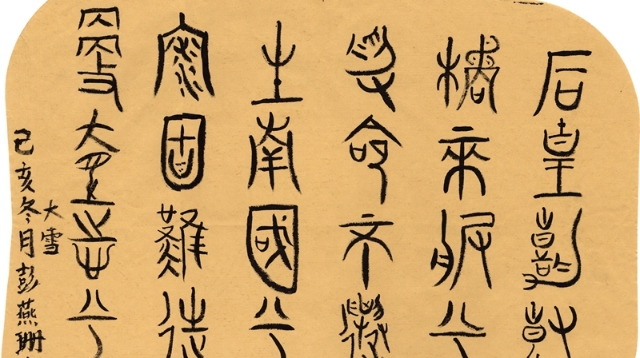 后皇嘉樹
橘來服兮
受命不遷
生南國兮
深固難徙
更壹志兮
大雪
己亥冬月彭燕珊